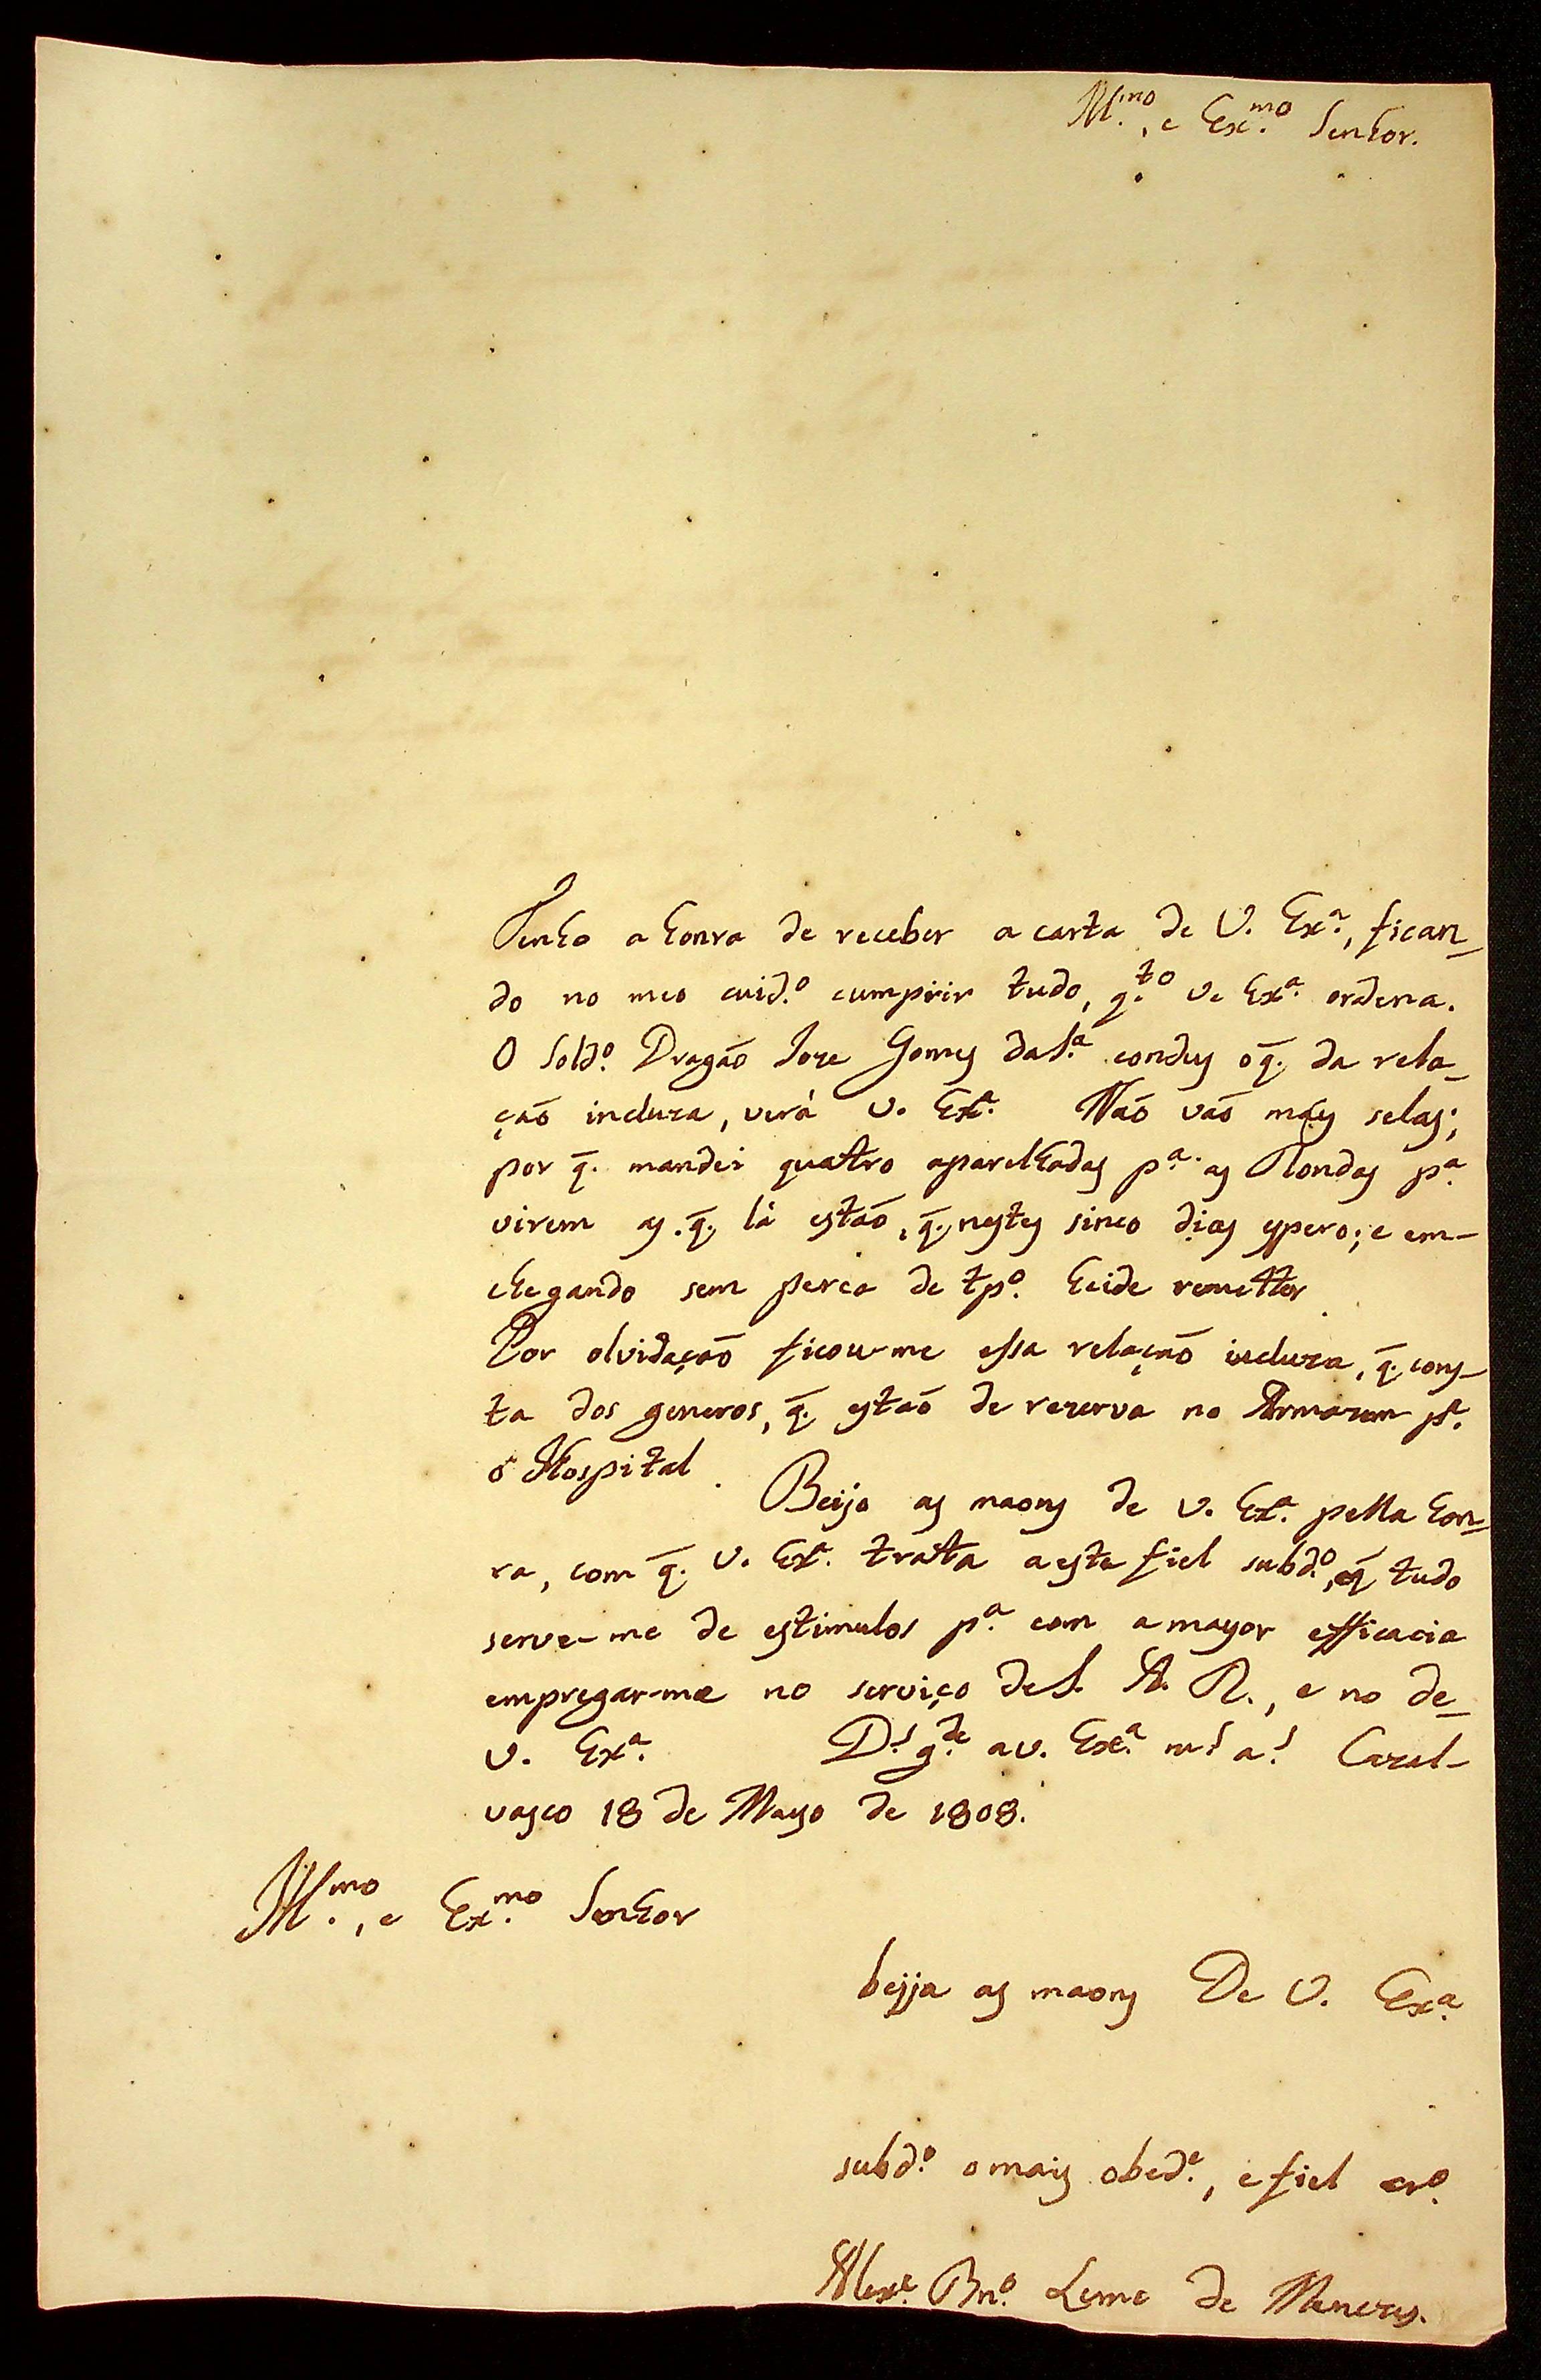 Ill.mo, e Ex.mo Senhor.
Tenho a honra de receber a carta de V. Ex.a, fican_
do no meo cuid.o cumprir tudo, q.to V. Ex.a ordena.
O Sold.o Dragaõ Joze Gomes daS.a condus oq̃. da rela_
çaõ incluza, verá V. Ex.a Naõ vaõ mais selas;
por q̃. mandei quatro aparelhadas p.a as Rondas p.a
virem as q̃. lá estaõ, q̃. nestes sinco dias espero; e em-
chegando sem perca de tp.o heide remetter.
Por olvidaçaõ ficou-me essa relaçaõ incluza, q̃. cons-
ta dos generos, q̃. estaõ de rezerva no Armazem p.a
o Hospital. Beijo as maons de V. Ex.a pella hon_
ra, com q̃. V. Ex.a tratta aeste fiel subd.o, eq̃ tudo
serve-me de estimulos p.a com amayor efficacia
empregar-me no serviço deS. A. R., e no de_
V. Ex.a D.s g.de aV. Ex.a m.s a.s Cazal-
vasco 18 de Mayo de 1808.
Ill.mo, e Ex.mo Senhor
beija as maons De V. Ex.a
subd.o omais obed.e, e fiel cr.o
Alex.e Bn.o Leme de Menezes.